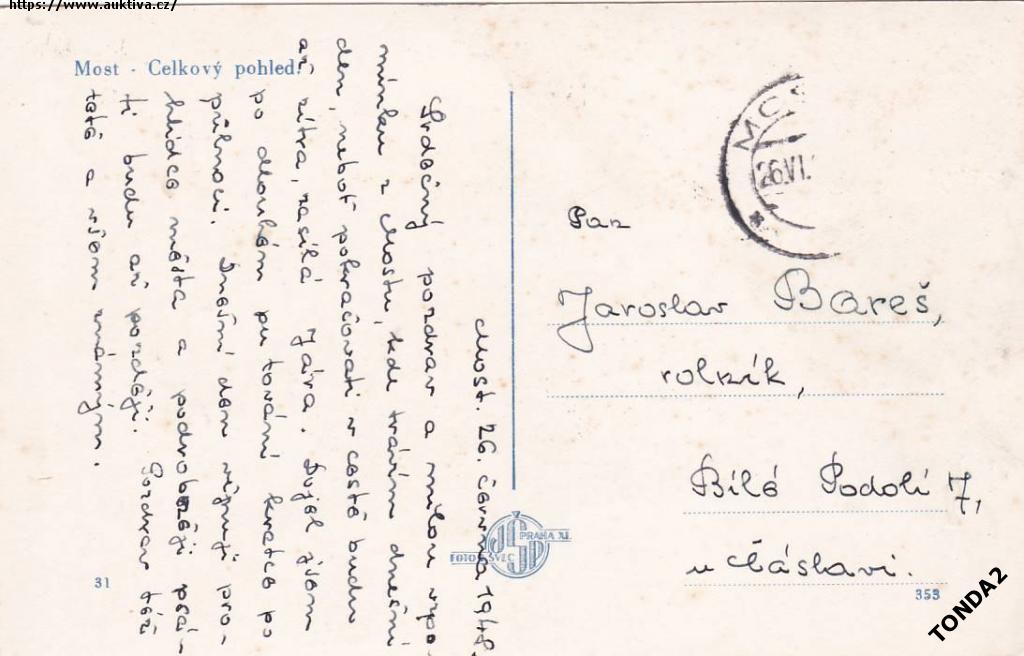 https://www.auktiva.cz/
Most - Celkový pohled.
Most. 26. června 1948.
Srdečný pozdrav a milou vzpo-
mínku z Mostu, kde trávím dnešní
den, neboť pokračovati v cestě budu
až zítra, zasílá Jára. Dojel jsem
po dlouhém putování krátce po
půlnoci. Dnešní den věnuji pro-
hlídce města a podrobněji psá-
ti budu až později. Pozdrav též
tetě a všem známým.
31
FOTO ŠVEC PRAHA XI.
MOS
26.VI.
Pan
Jaroslav Bareš,
rolník,
Bílé Podolí 7,
u Čáslavi.
353
TONDA2